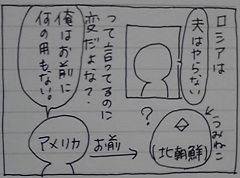 ロシアは
夫はやらない
つみねこ
北朝鮮
?
って言ってるのに
変だよな?
俺はお前に
何の用もない。
アメリカ
お前